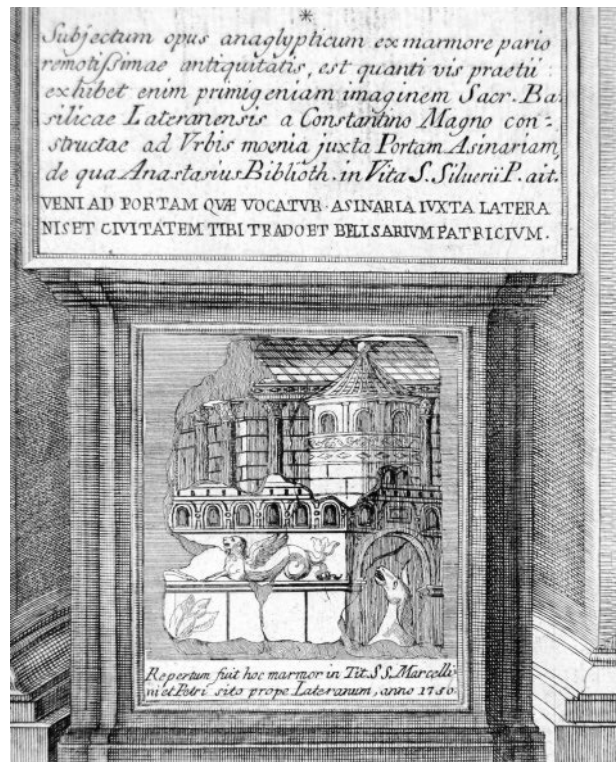 *
Subjectum opus anaglypticum ex marmore pario
remotissimae antiquitatis, est quanti vis praetii
exhibet enim primigeniam imaginem Sacr. Ba=
silicae Lateranensis a Constantino Magno con=
structae ad Vrbis moenia juxta Portam Asinariam,
de qua Anastasius Biblioth. in Vita S. Siluerii P. ait.
VENI AD PORTAM QVÆ VOCATVR · ASINARIA IVXTA LATERA
NIS ET CIVITATEM TIBI TRADO ET BELISARIVM PATRICIVM.
Repertum fuit hoc marmor in Tit. S S. Marcelli
ni et Petri sito prope Lateranum, anno 1750.